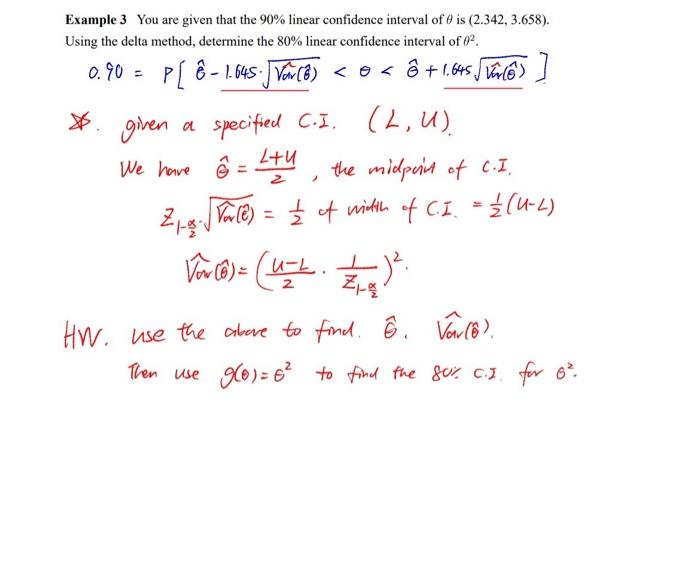 Example 3 You are given that the 90% linear confidence interval of θ is (2.342, 3.658).
Using the delta method, determine the 80% linear confidence interval of θ².
0.90 = P[ θ̂ - 1.645·√Var̂(θ̂) < θ < θ̂ + 1.645√Var̂(θ̂) ]
※. given a specified C.I. (L, U).
We have θ̂ = (L+U)/2, the midpoint of C.I.
Z_{1-α/2}·√Var̂(θ̂) = 1/2 of width of C.I. = 1/2(U-L)
Var̂(θ̂) = (U-L/2 · 1/Z_{1-α/2})².
HW. use the above to find. θ̂. Var̂(θ̂).
Then use g(θ)=θ² to find the 80% C.I. for θ².